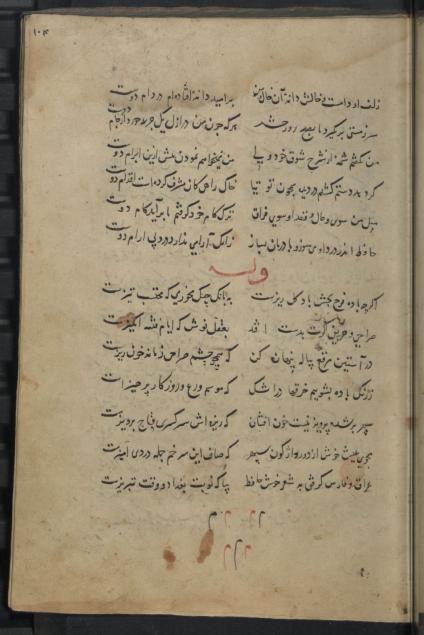 ۱۰۴
زلف او دامست و خالش دانهٔ آن دام و من بر امید دانهٔ افتاده‌ام در دام دوست
سر ز مستی بر نگیرد تا بصبح روز حشر هر که چون من در ازل یک جرعه خورد از جام دوست
من نگفتم شمهٔ از شرح شوق خود ولی من نمیخواهم نمودن بیش ازین ابرام دوست
گر دهد دستم کشم در دیده همچون توتیا خاک راهی کان مشرف گردد از اقدام دوست
میل من سوی وصال و قصد او سوی فراق ترک کام خود گرفتم تا برآید کام دوست
حافظ اندر درد او می‌سوز و با درمان بساز زانکه آرامی ندارد درد بی آرام دوست
وله
اگرچه باده فرح بخش و باد گل بیزست ببانگ چنگ مخور می که محتسب تیزست
صراحی و حریفی گرت بدست افتد بعقل نوش که ایام فتنه انگیزست
در آستین مرقع پیاله پنهان کن که همچو چشم صراحی زمانه خون ریزست
ز رنگ باده بشوییم خرقها در اشک که موسم ورع و روزگار پرهیزست
سپهر بر شده پرویزنیست خون افشان که ریزه‌اش سر کسری و تاج پرویزست
مجوی عیش خوش از دور واژگون سپهر که صاف این سر خم جمله دردی آمیزست
عراق و فارس گرفتی به شعر خوش حافظ بیا که نوبت بغداد و وقت تبریزست